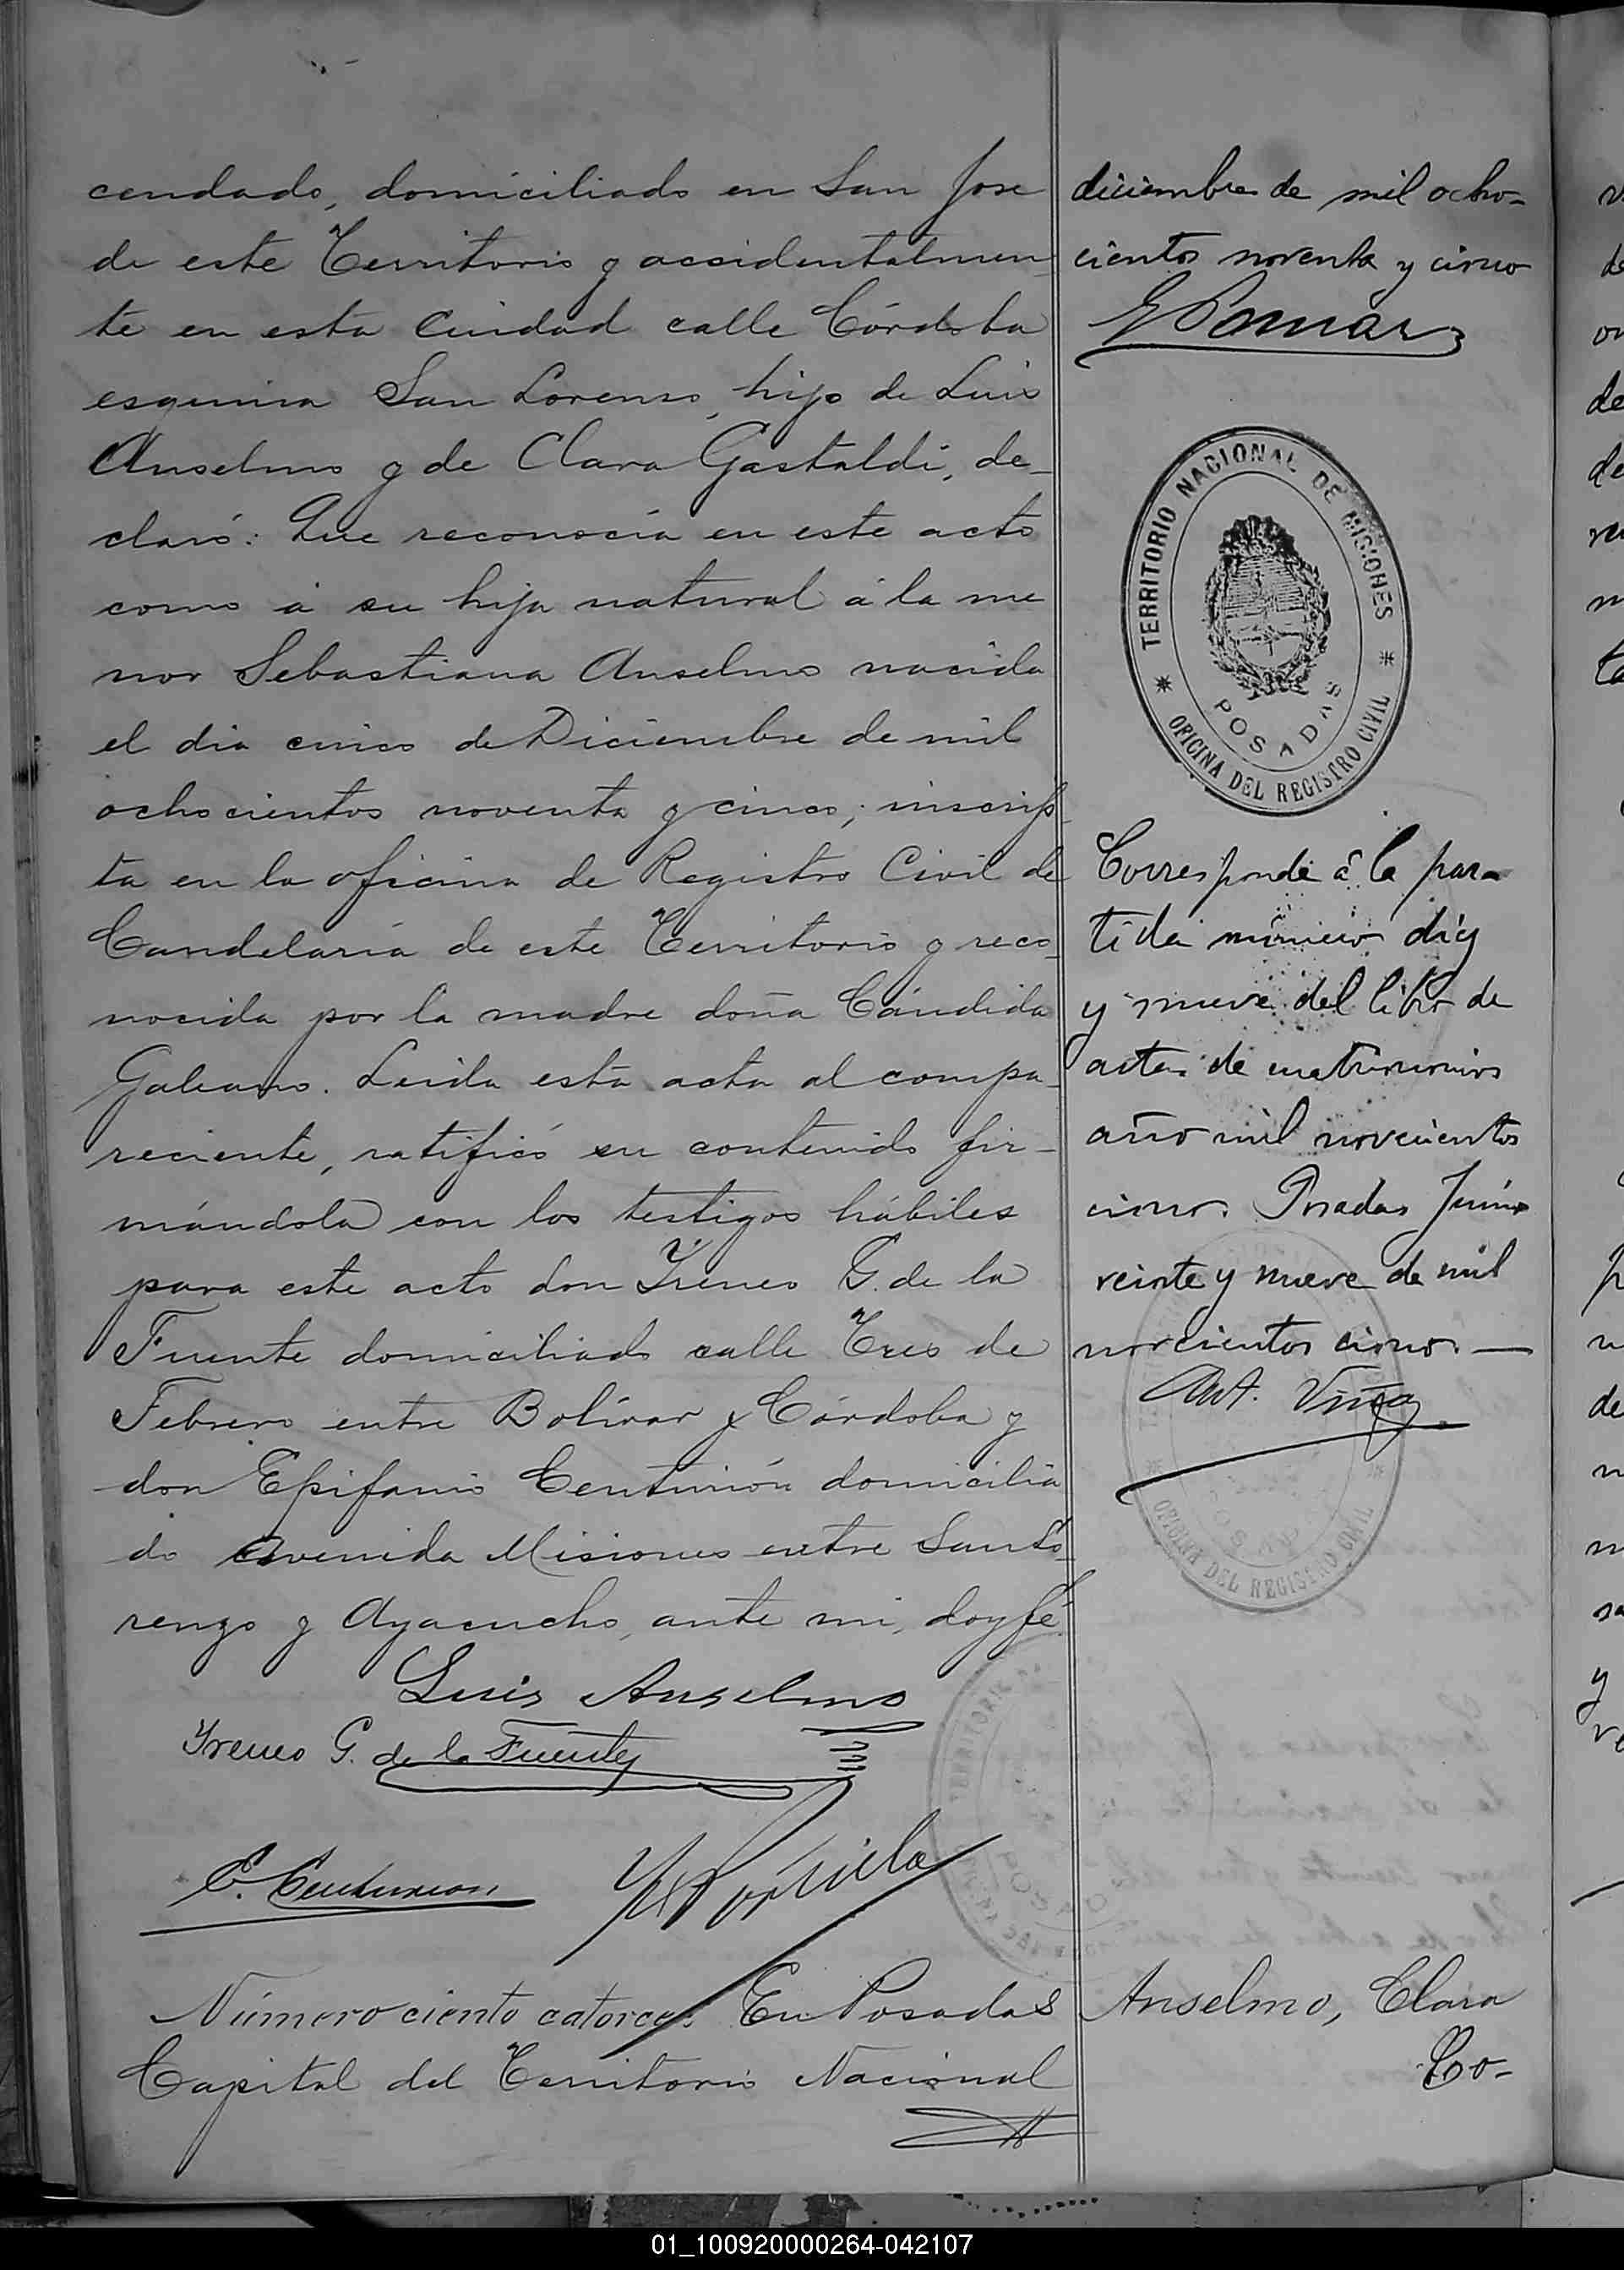 cendado, domiciliado en San José
de este Territorio y accidentalmen
te en esta Ciudad calle Córdoba
esquina San Lorenzo, hijo de Luis
Anselmo y de Clara Gastaldi, de-
claró: Que reconocía en este acto
como á su hija natural á la me
nor Sebastiana Anselmo nacida
el dia cinco de Diciembre de mil
ochocientos noventa y cinco, inscrip-
ta en la oficina de Registro Civil de
Candelaria de este Territorio y reco-
nocida por la madre doña Cándida
Galeano. Leida esta acta al compa-
reciente, ratificó su contenido fir-
mándola con los testigos hábiles
para este acto don Yreneo G. de la
Fuente domiciliado calle Tres de
Febrero entre Bolívar y Córdoba y
don Epifanio Centurión domicilia
do Avenida Misiones entre San Lo-
renzo y Ayacucho, ante mi, doy fé
Luis Anselmo
Yreneo G. de la Fuente
E. Centurion
Número ciento catorce. En Posadas
Capital del Territorio Nacional
diciembre de mil ocho-
cientos noventa y cinco
TERRITORIO NACIONAL DE MISIONES
POSADAS
OFICINA DEL REGISTRO CIVIL
Corresponde á la par-
tida número diez
y nueve del libro de
actas de matrimonios
año mil novecientos
cinco. Posadas Junio
veinte y nueve de mil
novecientos cinco. —
Ant.
OFICINA DEL REGISTRO CIVIL
TERRITORIO
Anselmo, Clara
Co-
01_100920000264-042107